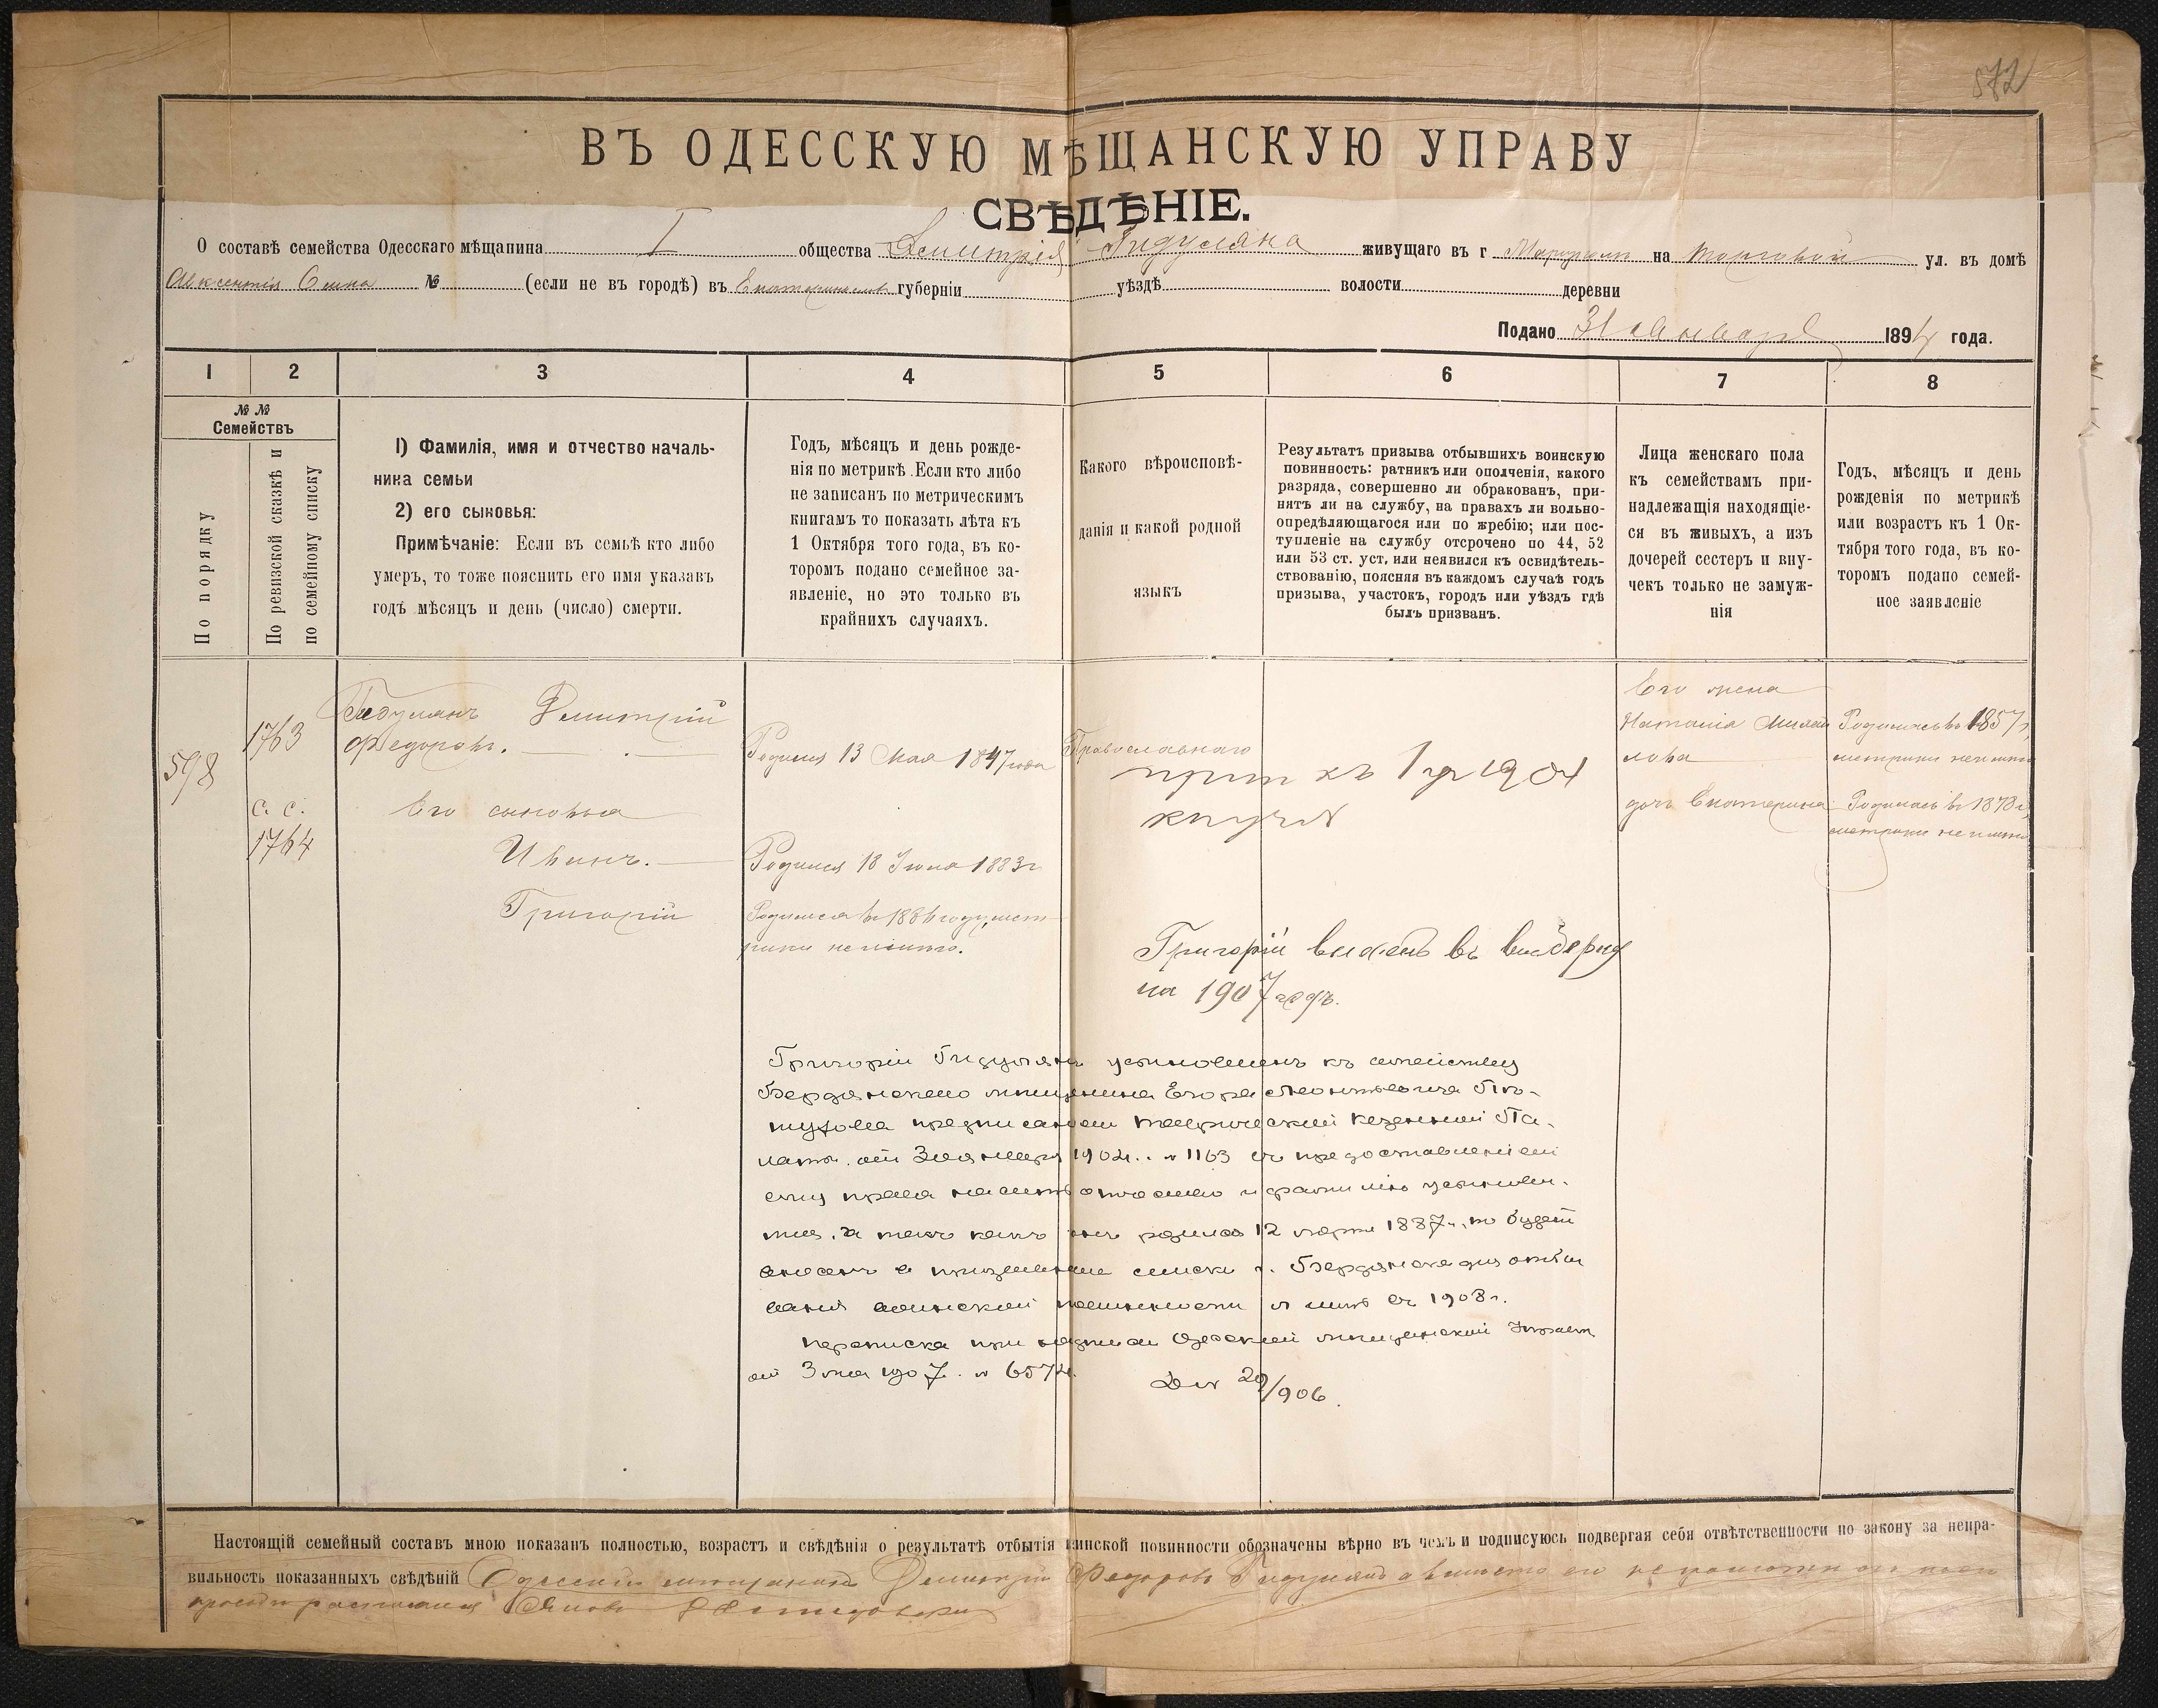 572
ВЪ ОДЕССКУЮ МѢЩАНСКУЮ УПРАВУ
СВѢДѢНІЕ.
О составѣ семейства Одесскаго мѣщанина I общества Дмитрія Гидуляна живущаго въ г Маріуполѣ на Торговой ул. въ домѣ
Авксентія № (если не въ городѣ) въ Екатеринослав губерніи уѣздѣ волости деревни
Подано 31 Января 1894 года.
1 2 3 4 5 6 7 8
№ № Семействъ
По порядку
По ревизской сказкѣ и по семейному списку
1) Фамилія, имя и отчество началь-
ника семьи
2) его сыновья:
Примѣчаніе: Если въ семьѣ кто либо
умеръ, то тоже пояснить его имя указавъ
годъ мѣсяцъ и день (число) смерти.
Годъ, мѣсяцъ и день рожде-
нія по метрикѣ. Если кто либо
не записанъ по метрическимъ
книгамъ то показать лѣта къ
1 Октября того года, въ ко-
торомъ подано семейное за-
явленіе, но это только въ
крайнихъ случаяхъ.
Какого вѣроисповѣ-
данія и какой родной
языкъ
Результатъ призыва отбывшихъ воинскую
повинность: ратникъ или ополченія, какого
разряда, совершенно ли обракованъ, при-
нятъ ли на службу, на правахъ ли вольно-
опредѣляющагося или по жребію; или пос-
тупленіе на службу отсрочено по 44, 52
или 53 ст. уст, или неявился къ освидѣтель-
ствованію, поясняя въ каждомъ случаѣ годъ
призыва, участокъ, городъ или уѣздъ гдѣ
былъ призванъ.
Лица женскаго пола
къ семействамъ при-
надлежащія находящіе-
ся въ живыхъ, а изъ
дочерей сестеръ и вну-
чекъ только не замуж-
нія
Годъ, мѣсяцъ и день
рожденія по метрикѣ
или возрастъ къ 1 Ок-
тября того года, въ ко-
торомъ подано семей-
ное заявленіе
598
1763
с. с.
1764
Гидулянъ Дмитрій
Федоровъ.
Его сыновья
Иванъ.
Григорій
Родился 13 Мая 1847 года
Родился 18 Іюня 1883 г
Родился въ 1886 году, мет-
рики не имѣетъ.
Православнаго
къ 1904
Григорій внесенъ въ
на 1907 годъ.
Его жена
Наталія Михай
лова
дочь Екатерина
Родилась въ 1857 г,
метрики не имѣетъ
Родилась въ 1878 г,
метрики не имѣетъ
Григорій Гидулянъ усыновленъ къ семейству
Бердянскаго мѣщанина Егора Леонтьевича
предписаніемъ Таврической Казенной Па-
латы отъ 3 января 1902 г. № 1163 съ предоставленіемъ
ему права на отчество и фамилію усынови-
теля. А такъ какъ онъ родился 12 марта 1887 г., то будетъ
внесенъ в призывные списки г. Бердянска для отбы
ванія воинской повинности в 1908 г.
переписка при надписи Одесской мѣщанской Управы
отъ 3 мая 1907 г. № 6574.
20/906.
Настоящій семейный составъ мною показанъ полностью, возрастъ и свѣдѣнія о результатѣ отбытія воинской повинности обозначены вѣрно въ чемъ и подписуюсь подвергая себя отвѣтственности по закону за непра-
вильность показанныхъ свѣдѣній Одесскій мѣщанинъ Дмитрій Федоровъ Гидулянъ а вмѣсто его неграмотнаго по его
просьбѣ росписался